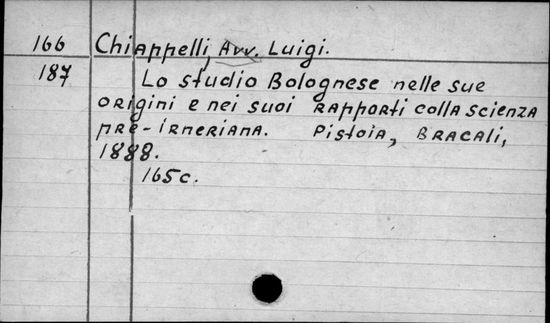 166 Chiappelli, Avv. Luigi.
187 Lo studio Bolognese nelle sue
origini e nei suoi rapporti colla scienza
pre-irneriana. Pistoia, Bracali,
1888.
165c.